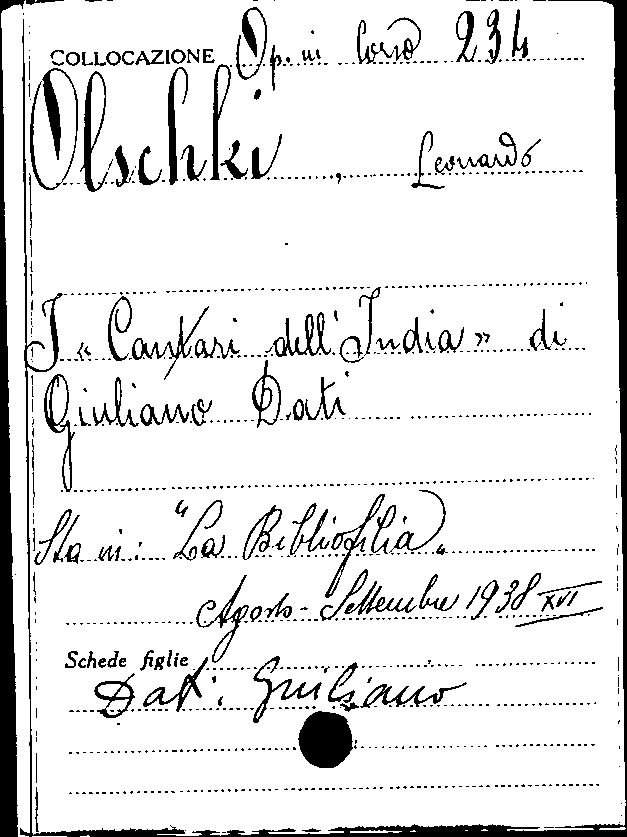 COLLOCAZIONE Op. in Corso 234
Olschki, Leonardo
I « Cantari dell'India » di
Giuliano Dati
Sta in: "La Bibliofilia„
Agosto - Settembre 1938 XVI
Schede figlie
Dati Giuliano